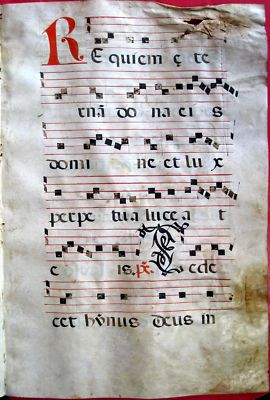 REquiem ę te
rnā do na ei s
domi ne et lu x
perpe tua lucea t
e is. ps. Te dec
cet hỹnus deus in